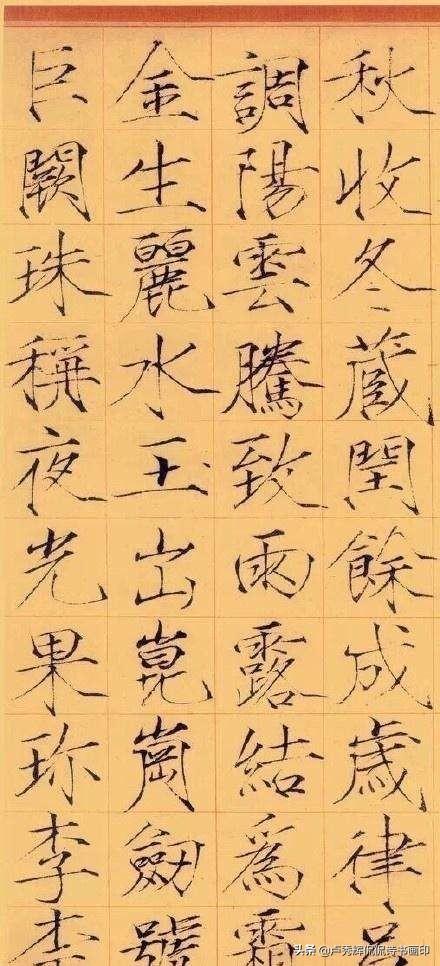 秋收冬蔵閏餘成歳律吕
調陽雲騰致雨露結爲霜
金生麗水玉出崑崗劔號
巨闕珠稱夜光果珎李柰
头条 @卢秀辉侃侃诗书画印